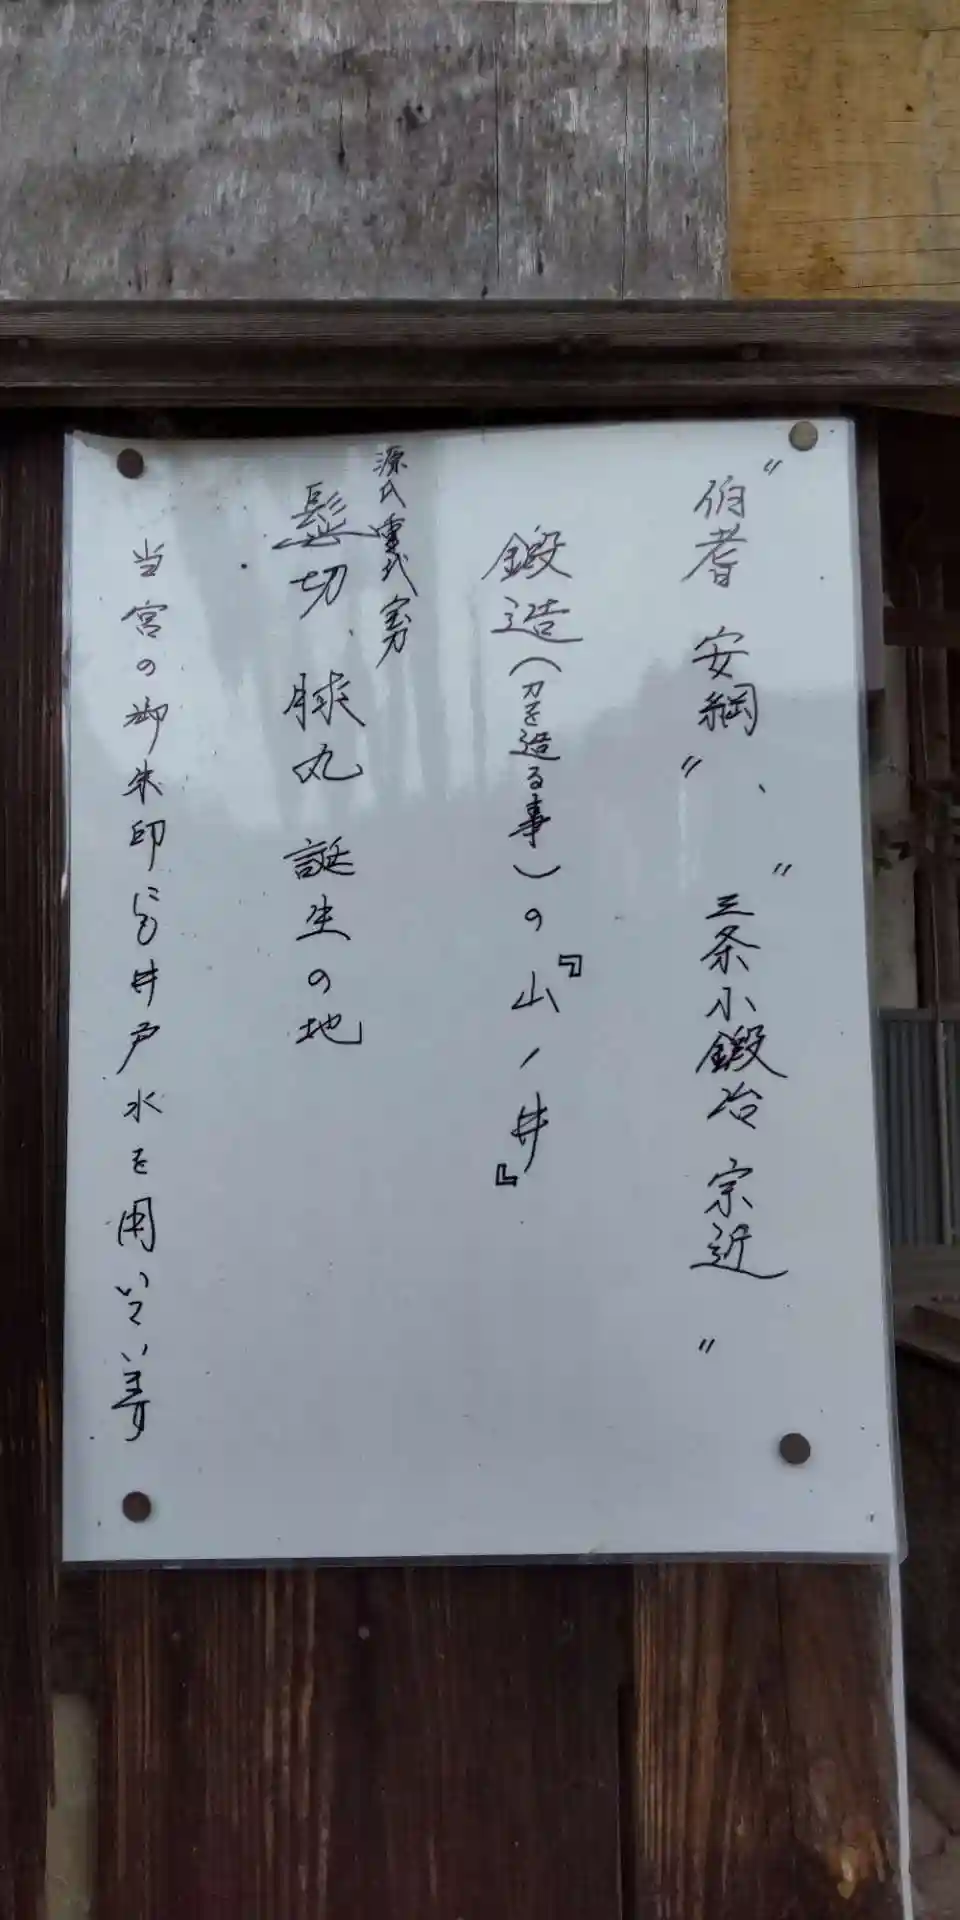 "伯耆 安綱"、"三条小鍛冶 宗近"
鍛造(刀を造る事)の『山ノ井』
源氏重代宝刀
髭切、膝丸 誕生の地
当宮の御朱印にも井戸水を用いています